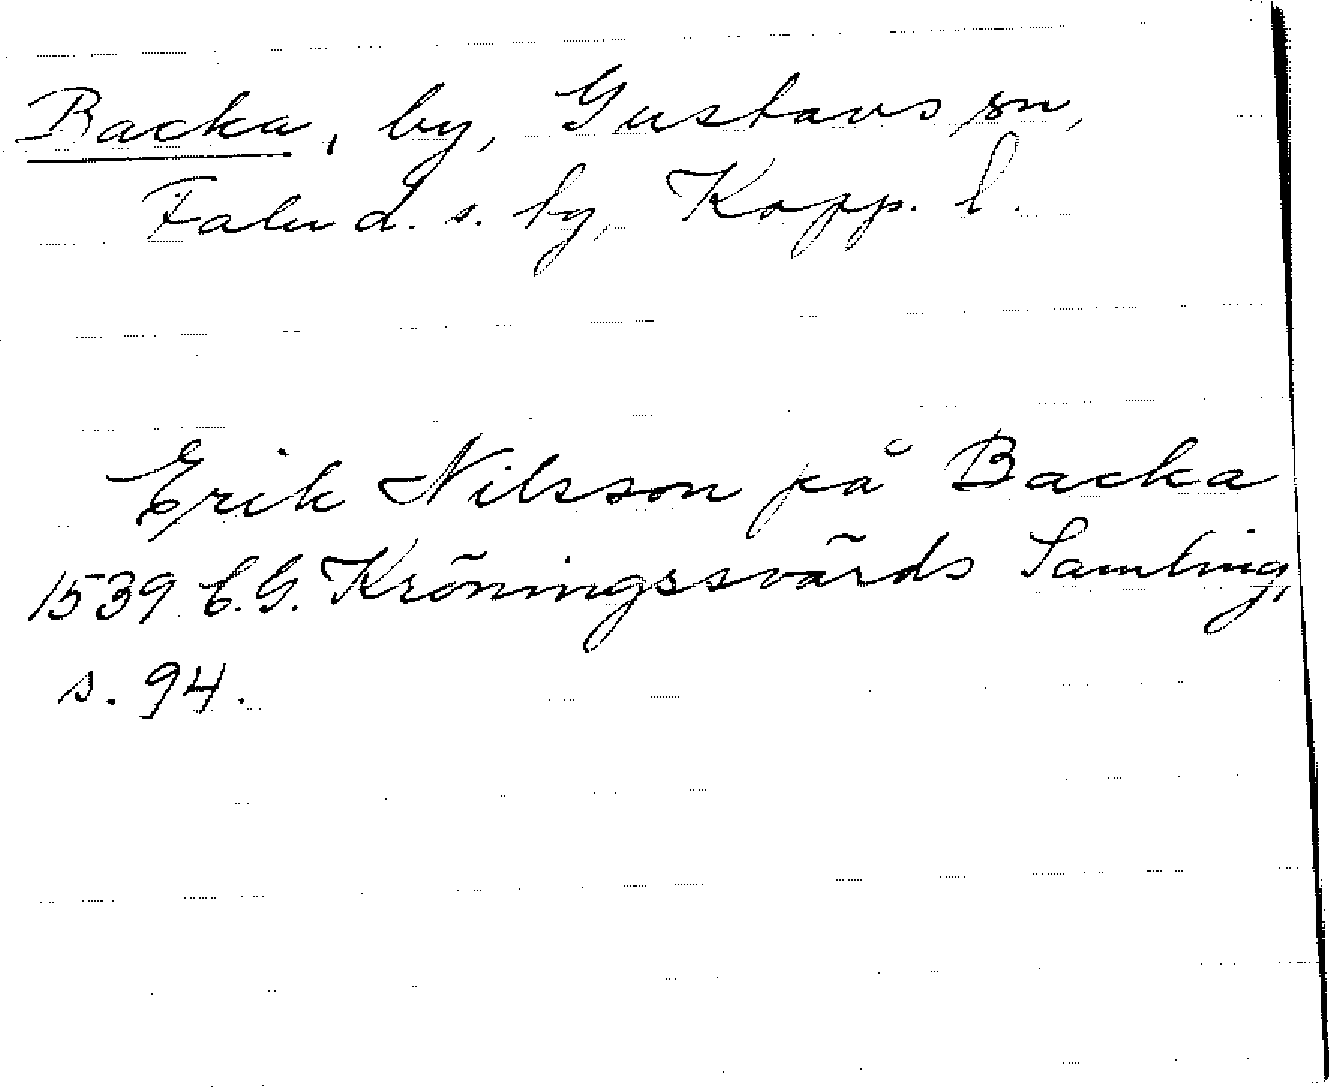 Backa, by, Gustavs sn,
Falu d. s. by, Kopp. l.
Erik Nilsson på Backa
1539 C.G. Kröningssvärds Samling,
s. 94.